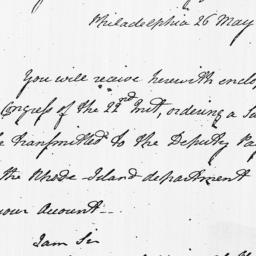 Philadelphia 26 May
You will receive herewith enclo
Congress of the 22nd Inst, ordering a Su
e transmitted to the Deputy Pay
the Rhode Island department
your Account—
I am Sir